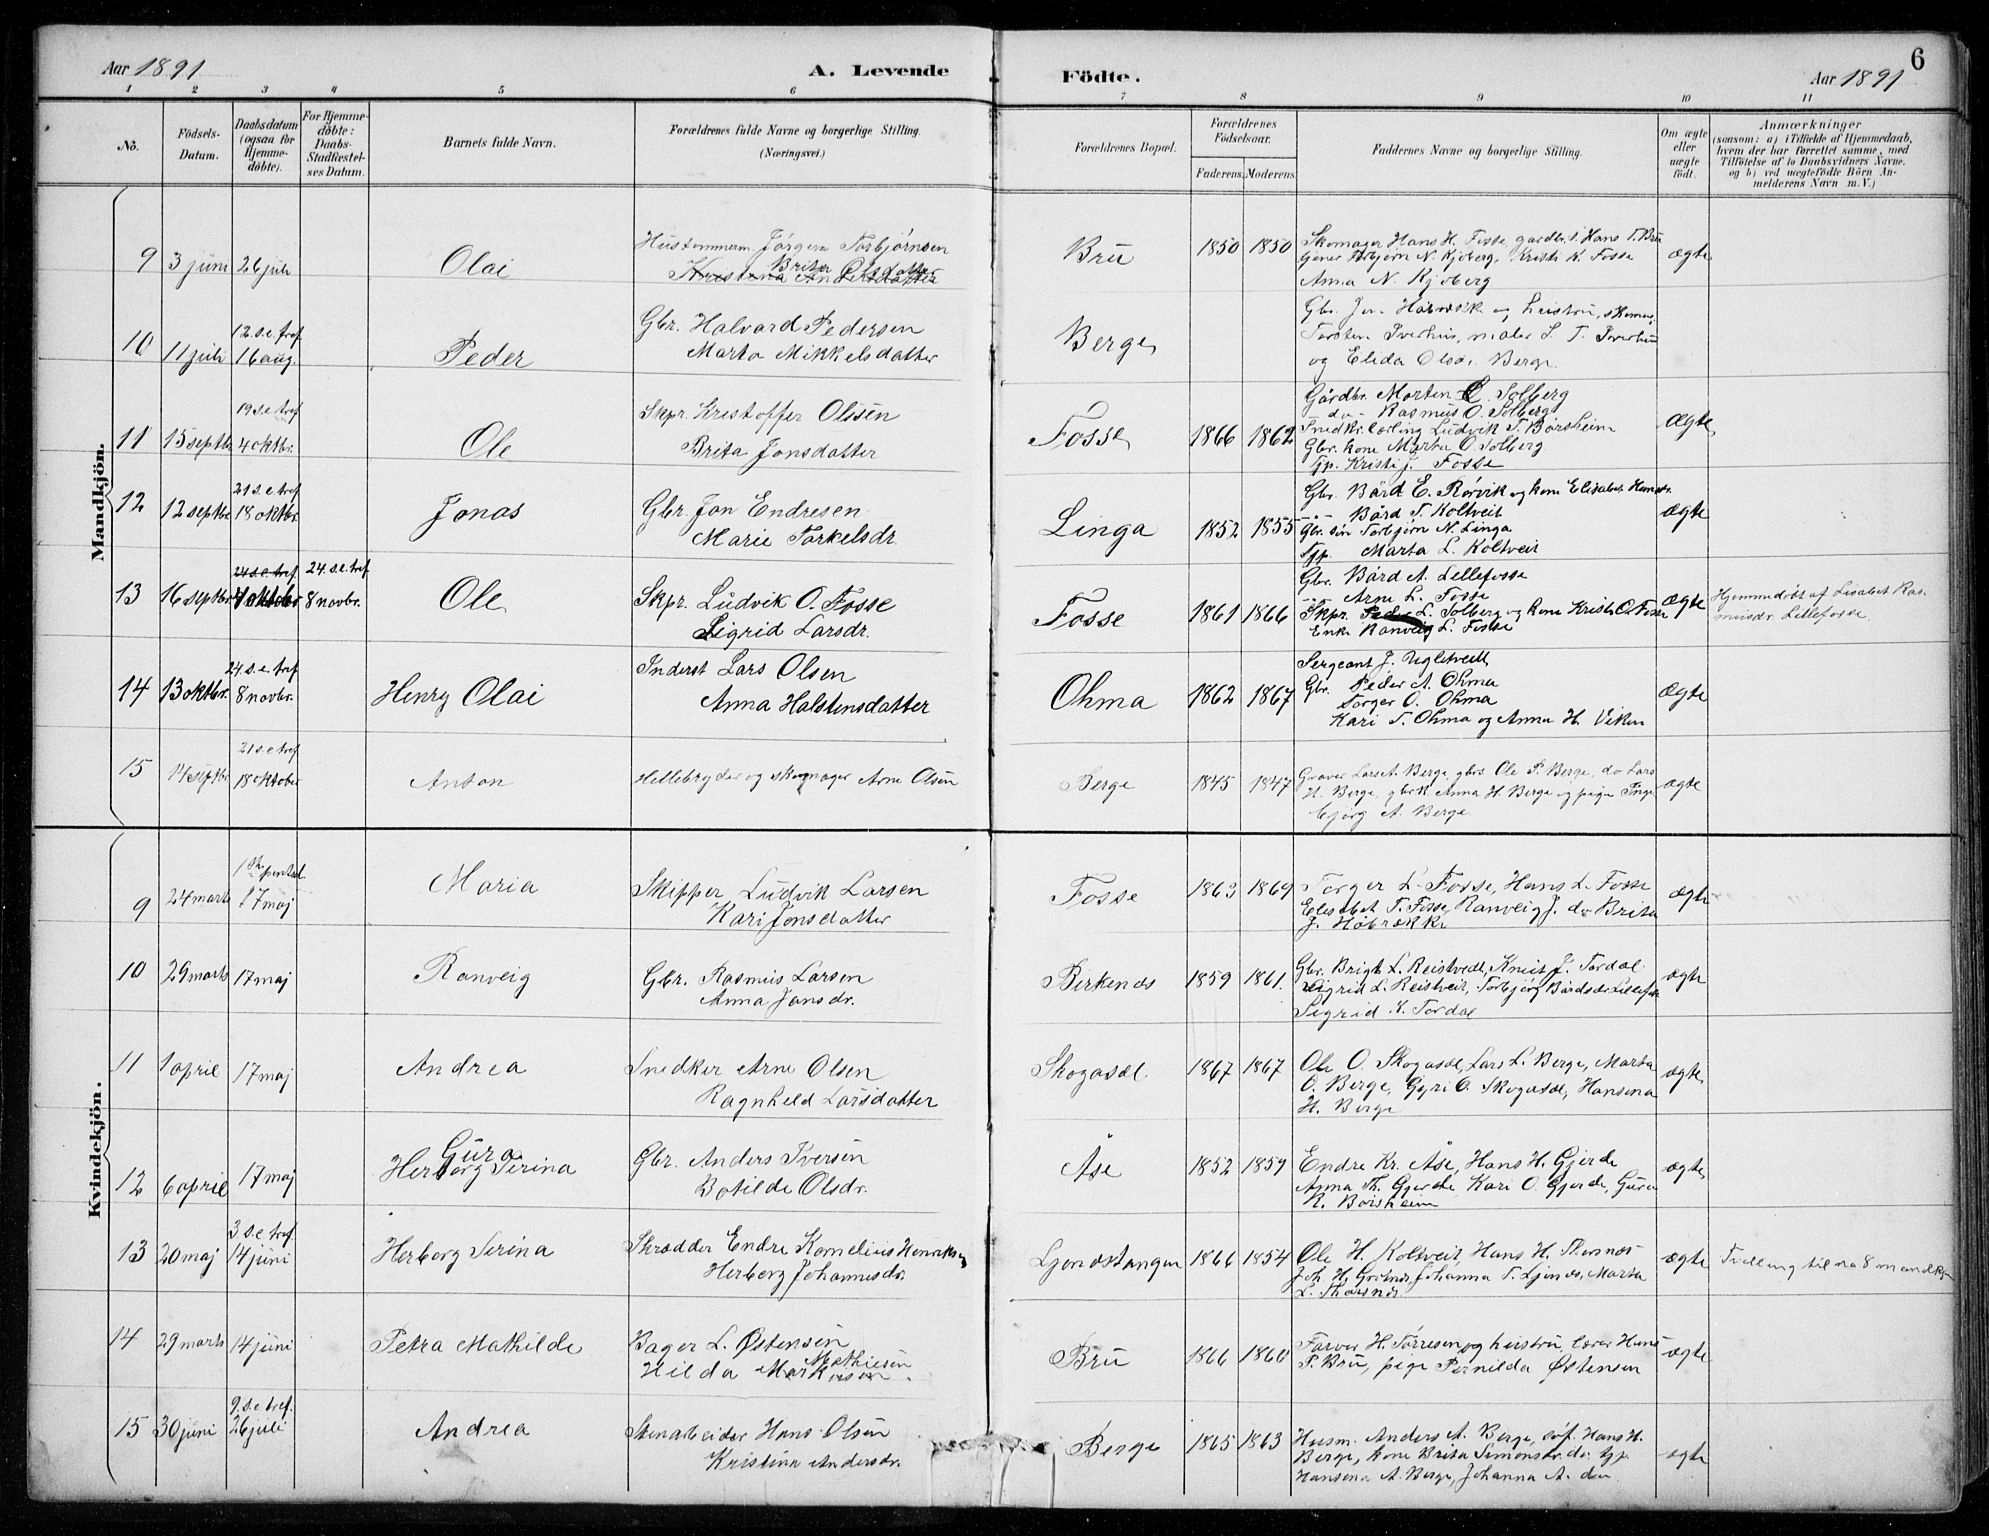 Aar 1891
A. Levende
Födte.
Aar 1891
6
1 2 3 4 5 6 7 8 9 10 11
No.
Födsels-Datum.
Daabsdatum (ogsaa för Hjemme-döbte).
For Hjemme-döbte: Daabs-Stadfæstel-ses Datum.
Barnets fulde Navn.
Forældrenes fulde Navne og borgerlige Stilling.
(Næringsvei.)
Forældrenes Bopæl.
Forældrenes Födselsaar.
Faderens. Moderens.
Faddernes Navne og borgerlige Stilling.
Om ægte eller uægte födt.
Anmærkninger
(saasom: a) i Tilfælde af Hjemmedaab,
hvem der har forrettet samme, med
Tilföielse af to Daabsvidners Navne.
og b) ved uægtefödte Börn An-
melderens Navn m.V.)
Mandkjön.
9 3 juni 26 juli Olai
Hustømmerm. Jørgen Torbjørnsen
Brita Olsdatter
Kristina Andersdatter
Bru 1850 1850
Skomager Hans H. Fosse, gardbr. s. Hans T. Bru
Torbjørn N. Kjoberg, Kristi K. Fosse
Anna N. Kjoberg
ægte
10 11 juli 12 s.e. tref 16 aug. Peder
Gbr. Halvard Pedersen
Marta Mikkelsdatter
Berge
og hustru, skomag.
Torsten Iverhus, maler L. T. Iverhus
og Elida Olsdr. Berge
11 15 septbr 19 s.e. tref 4 oktbr. Ole
Skpr. Kristoffer Olsen
Brita Jonsdatter
Fosse 1866 1862
Gårdbr. Morten L. Solberg
- do - Rasmus O. Solberg
Snedkr. lærling Ludvik T. Børsheim
Gbr. kone Marta O. Solberg
Tjp. Kristi J. Fosse
ægte
12 12 septbr 21 s.e. tref 18 oktbr. Jonas
Gbr. Jon Endresen
Marie Torkelsdr.
Linga 1852 1855
Gbr. Bård E. Rørvik og kone Elisabet Hansdr.
Bård T. Koltveit
Gbr. søn Torbjørn N. Linga
Tjp. Marta L. Koltveit
ægte
13 16 septbr 24 s.e. tref 4 oktobr. 24. s.e. tref 8 novbr. Ole
Skpr. Ludvik O. Fosse
Sigrid Larsdr.
Fosse 1861 1866
Gbr. Bård A. Lillefosse
Arne L. Fosse
Skpr. Peder L. Solberg og kone Kristi O. Fosse
Enke Ranveig L. Fosse
ægte
Hjemmedøbt af Lisabet Ras-
musdr. Lillefosse
14 13 oktbr. 24. s.e. tref 8 novbr. Henry Olai
Inderst Lars Olsen
Anna Halstensdatter
Ohma 1862 1867
Sergeant J. Ugletveit
Gbr. Peder A. Ohma
Torger O. Ohma
Kari T. Ohma og Anna H. Viken
ægte
15 14 septbr 21 s.e. tref 18 oktober Anton
Hellebryder og skomager Arne Olsen
Berge 1845 1847
Graver Lars A. Berge, gbrs. Ole P. Berge, do Lars
H. Berge, gbrk. Anna H. Berge og pige Inge-
bjørg A. Berge
ægte
Kvindekjön.
9 24 marts 17 maj Maria
Skipper Ludvik Larsen
Kari Jonsdatter
Fosse 1863 1869
Torger L. Fosse, Hans L. Fosse
Elisabet T. Fosse, Ranveig J. do Brita
J. Høbrekke
ægte
10 29 marts 17 maj Ranveig
Gbr. Rasmus Larsen
Anna Jansdr.
Birkenes 1859 1861.
Gbr. Brigt L. Reistvedt, Knut J. Tordal
Sigrid L. Reistveit, Torbjørg Bårdsdr. Lillefosse
Sigrid K. Tordal
ægte
11 1 april 17 maj Andrea
Snedker Arne Olsen
Ragnhild Larsdatter
Skogasæl. 1867 1867
Ole O. Skogasæl, Lars L. Berge, Marta
O. Berge, Gyri O. Skogasæl, Hansena
H. Berge
ægte
12 6 april 17 maj Guro
Herborg Serina
Gbr. Anders Iversen
Botilde Olsdr.
Åse 1852 1859
Endre Kr. Åse, Hans H. Gjerde
Anna Th. Gjerde, Kari O. Gjerde, Guro
R. Børsheim
ægte
13 20 maj 3 s.e. tref. 14 juni Herborg Serina
Skrædder Endre Kornelius Henriksen
Herborg Johannesdr.
Ljonestangen 1866 1854
Ole H. Koltveit, Hans H. Thorsnes
Joh. H. Johanna T. Ljones, Marta
L. Thorsnes
ægte
Tvilling til no 8 mandkjøn
14 29 marts 14 juni Petra Mathilde
Bager L. Østensen
Mathiesen
Hilda Markusen.
Bru 1866 1860
Farver H. Tørresen og hustru, lærer Hans
T. Bru, pige Pernilda Østensen
ægte
15 30 juni 9. s.e. tref. 26 juli Andrea
Stenarbeider Hans Olsen
Kristina Andersdr.
Berge 1865 1863
Husm. Anders A. Berge, Hans H.
Berge, kone Brita Simonsdr. do. tjp.
Hansena A. Berge, Johanna A. do
ægte